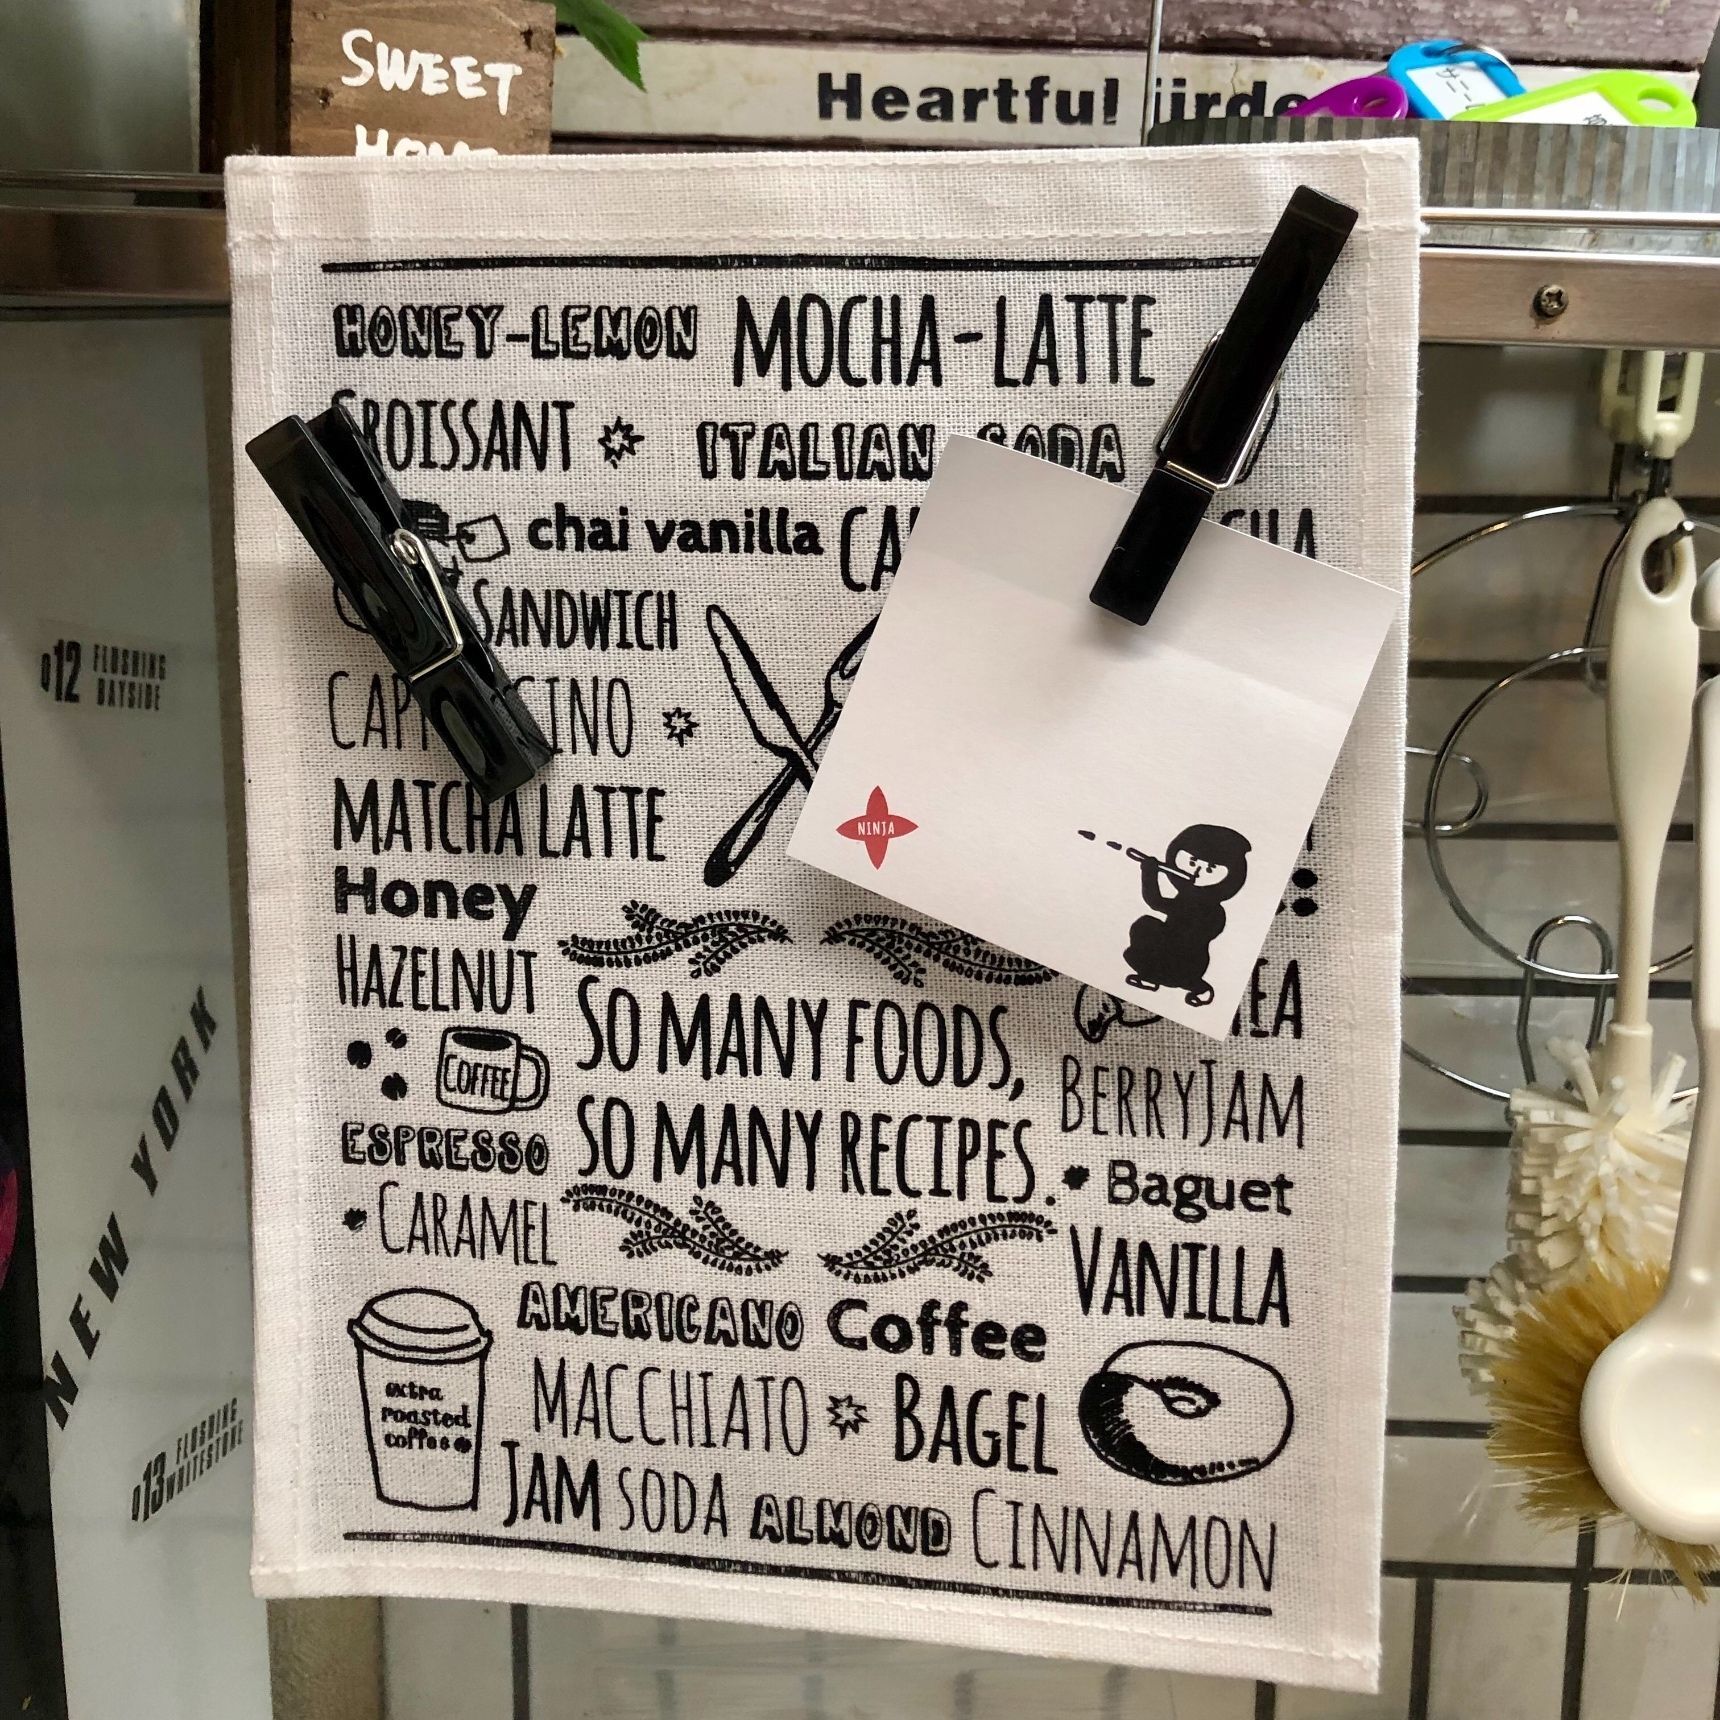 SWEET
HOME
Heartful
HONEY-LEMON MOCHA-LATTE
CROISSANT ITALIAN SODA
chai vanilla
SANDWICH
MATCHA LATTE
Honey
HAZELNUT
NINJA
COFFEE
SO MANY FOODS,
SO MANY RECIPES.
BERRY JAM
ESPRESSO
Baguet
CARAMEL
VANILLA
AMERICANO Coffee
MACCHIATO BAGEL
extra
roasted
coffee
JAM SODA ALMOND CINNAMON
012 FLUSHING
BAYSIDE
NEW YORK
013 FLUSHING
WHITESTONE